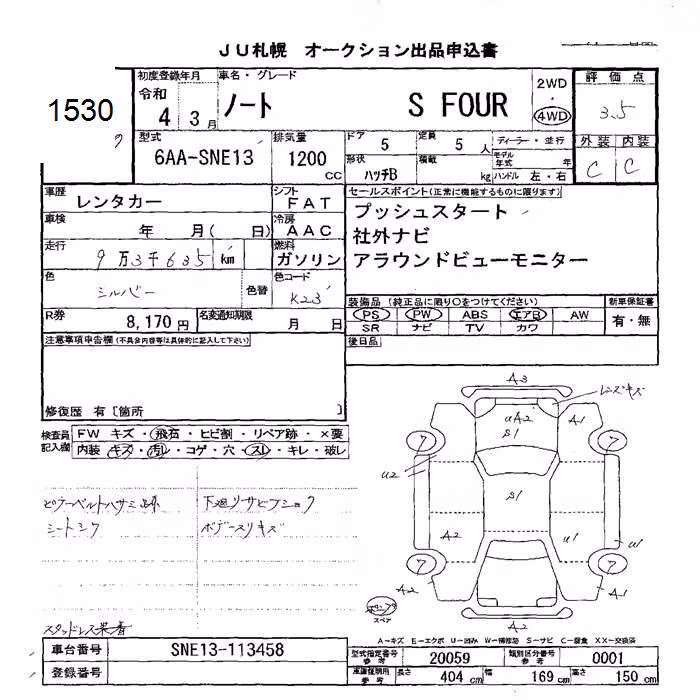 JU札幌 オークション出品申込書
1530
初度登録年月
令和
4 3月
車名・グレード
ノート S FOUR
2WD
・
4WD
評価点
3.5
外装 内装
C C
型式
6AA-SNE13
排気量
1200
CC
ドア
5
定員
5人
ディーラー・並行
モデル
年式 年
形状
ハッチB
積載
kg
ハンドル 左・右
車歴
レンタカー
シフト
FAT
車検
年 月( 日)
冷房
AAC
走行
9万3千635 km
燃料
ガソリン
色
シルバー
色替
色コード
K23
R券
8,170円
名変通知期限
月 日
セールスポイント(正常に機能するものに限ります)
プッシュスタート
社外ナビ
アラウンドビューモニター
装備品(純正品に限り○をつけてください)
新車保証書
PS PW ABS エアB AW
SR ナビ TV カワ
有・無
後日品
注意事項申告欄(不具合内容等は具体的に記入して下さい)
修復歴 有〔箇所 〕
検査員
記入欄
FW キズ・飛石・ヒビ割・リペア跡・×要
内装 キズ・汚レ・コゲ・穴・スレ・キレ・破レ
シートシワ
下廻リサビフショク
ボデースリキズ
スタッドレス装着
A3
レンズキズ
UA2
S1
A1
7 7
U2
S1
A2
U1
U1
7 7
A2
A2
スペア
A-キズ E-エクボ U-凹み W-補修跡 S-サビ C-腐食 XX-交換済
車台番号
SNE13-113458
登録番号
型式指定番号
参考
20059
類別区分番号
参考
0001
車庫証明用
参考
長さ
404cm
幅
169cm
高さ
150cm